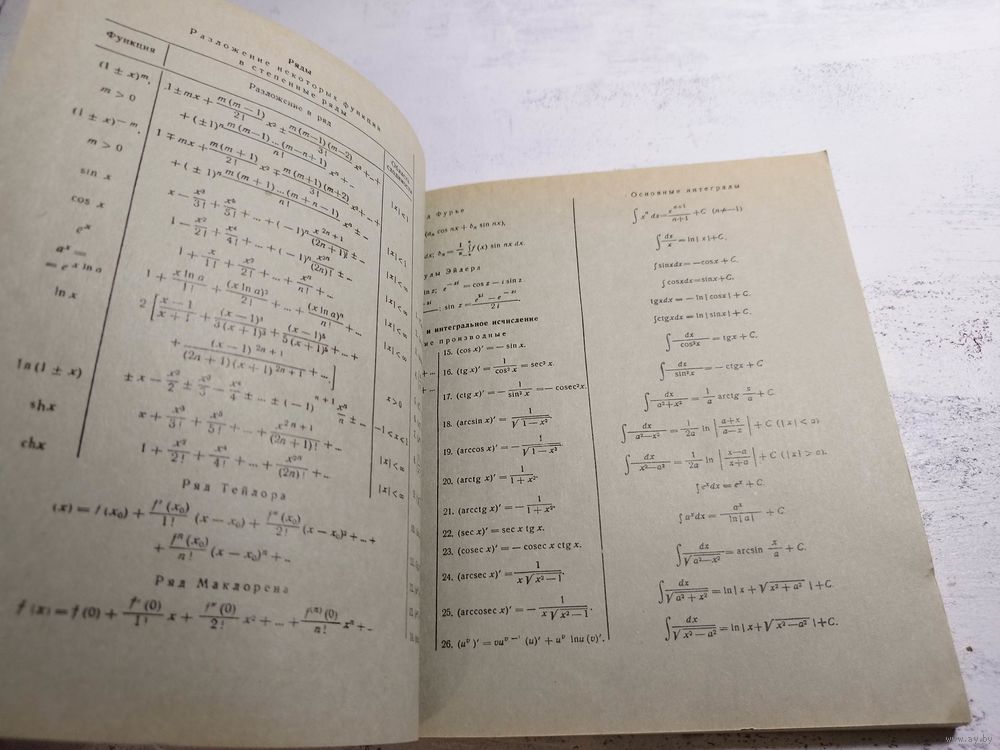 Ряды
Разложение некоторых функций
в степенные ряды
Функция
Разложение в ряд
Область сходимости
(1 ± x)^m, m > 0
1 ± mx + m(m−1)/2! x² ± m(m−1)(m−2)/3! x³ + ... +
+ (±1)ⁿ m(m−1)...(m−n+1)/n! xⁿ + ...
|x| < 1
(1 ± x)^−m, m > 0
1 ∓ mx + m(m+1)/2! x² ∓ m(m+1)(m+2)/3! x³ + ... +
|x| < 1
sin x
x − x³/3! + x⁵/5! + ... + (−1)ⁿ x^2n+1/(2n+1)! ± ...
|x| < ∞
cos x
1 − x²/2! + x⁴/4! + ... + (−1)ⁿ x^2n/(2n)! ± ...
|x| < ∞
e^x
1 + x/1! + x²/2! + ... + xⁿ/n! + ...
|x| < ∞
a^x = e^x ln a
1 + x ln a/1! + (x ln a)²/2! + ... + (x ln a)ⁿ/n! + ...
|x| < ∞
ln x
2 [ x−1/x+1 + (x−1)³/3(x+1)³ + (x−1)⁵/5(x+1)⁵ + ... +
+ (x−1)^2n+1/(2n+1)(x+1)^2n+1 + ... ]
x > 0
ln (1 ± x)
± x − x²/2 ± x³/3 − x⁴/4 ± ... ± (−1)^n+1 xⁿ/n ± ...
−1 < x < 1
shx
x + x³/3! + x⁵/5! + ... + x^2n+1/(2n+1)! + ...
|x| < ∞
chx
1 + x²/2! + x⁴/4! + ... + x^2n/(2n)! + ...
|x| < ∞
Ряд Тейлора
(x) = f(x₀) + f′(x₀)/1! (x − x₀) + f″(x₀)/2! (x − x₀)² + ... +
+ fⁿ(x₀)/n! (x − x₀)ⁿ + ...
Ряд Маклорена
f(x) = f(0) + f′(0)/1! x + f″(0)/2! x² + ... + f^(n)(0)/n! xⁿ + ...
Фурье
cos nx + bₙ sin nx),
dx; bₙ = f(x) sin nx dx.
Эйлера
e^−zi = cos z − i sin z
sin z = e^zi − e^−zi/2i.
и интегральное исчисление
производные
15. (cos x)′ = − sin x.
16. (tg x)′ = 1/cos² x = sec² x.
17. (ctg x)′ = − 1/sin² x = − cosec² x.
18. (arcsin x)′ = 1/√1−x².
19. (arccos x)′ = − 1/√1−x².
20. (arctg x)′ = 1/1+x².
21. (arcctg x)′ = − 1/1+x².
22. (sec x)′ = sec x tg x.
23. (cosec x)′ = − cosec x ctg x.
24. (arcsec x)′ = 1/x√x²−1.
25. (arccosec x)′ = − 1/x√x²−1.
26. (u^v)′ = vu^v−1 (u)′ + u^v lnu (v)′.
Основные интегралы
∫ xⁿ dx = x^n+1/n+1 + C (n≠−1)
∫ dx/x = ln|x| + C.
∫sinxdx = −cosx + C.
∫cosxdx = sinx + C.
tgxdx = − ln|cosx| + C.
∫ctgxdx = ln|sinx| + C.
∫ dx/cos²x = tgx + C.
∫ dx/sin²x = − ctgx + C
∫ dx/a²+x² = 1/a arctg x/a + C.
∫ dx/a²−x² = 1/2a ln |a+x/a−x| + C (|x| < a)
∫ dx/x²−a² = 1/2a ln |x−a/x+a| + C (|x| > a).
∫e^x dx = e^x + C.
∫a^x dx = a^x/ln|a| + C.
∫ dx/√a²−x² = arcsin x/a + C.
∫ dx/√a²+x² = ln|x + √x²+a²| + C.
∫ dx/√x²−a² = ln|x + √x²−a²| + C.
www.ay.by